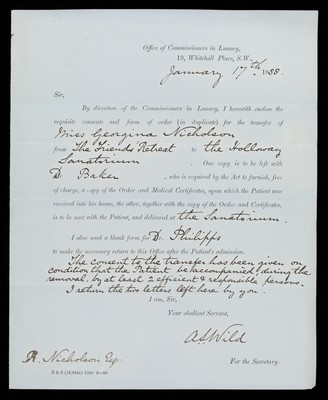 Office of Commissioners in Lunacy,
19, Whitehall Place, S.W.,
January 17th. 1888.
Sir,
By direction of the Commissioners in Lunacy, I herewith enclose the
requisite consents and form of order (in duplicate) for the transfer of
Miss Georgina Nicholson
from The Friends Retreat to the Holloway
Sanatorium. One copy is to be left with
Dr. Baker, who is required by the Act to furnish, free
of charge, a copy of the Order and Medical Certificates, upon which the Patient was
received into his house, the other, together with the copy of the Order and Certificates,
is to be sent with the Patient, and delivered at the Sanatorium.
I also send a blank form for Dr. Philipps
to make the necessary return to this Office after the Patient's admission.
The consent to the transfer has been given on
condition that the Patient be accompanied, during the
removal, by at least 2 efficient & responsible persons.
I return the two letters left here by you.
I am, Sir,
Your obedient Servant,
Wild
For the Secretary.
R. Nicholson Esq